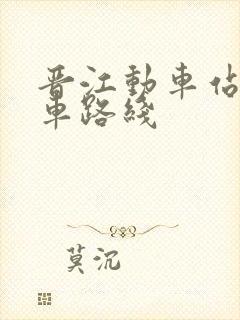 晋江動車佔
車路綫
莫沉